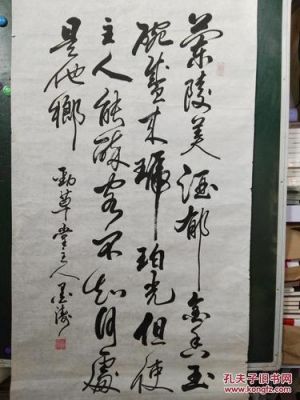 兰陵美酒郁金香玉
碗盛来琥珀光但使
主人能醉客不知何处
是他乡
劲草堂主人墨涛
孔夫子旧书网